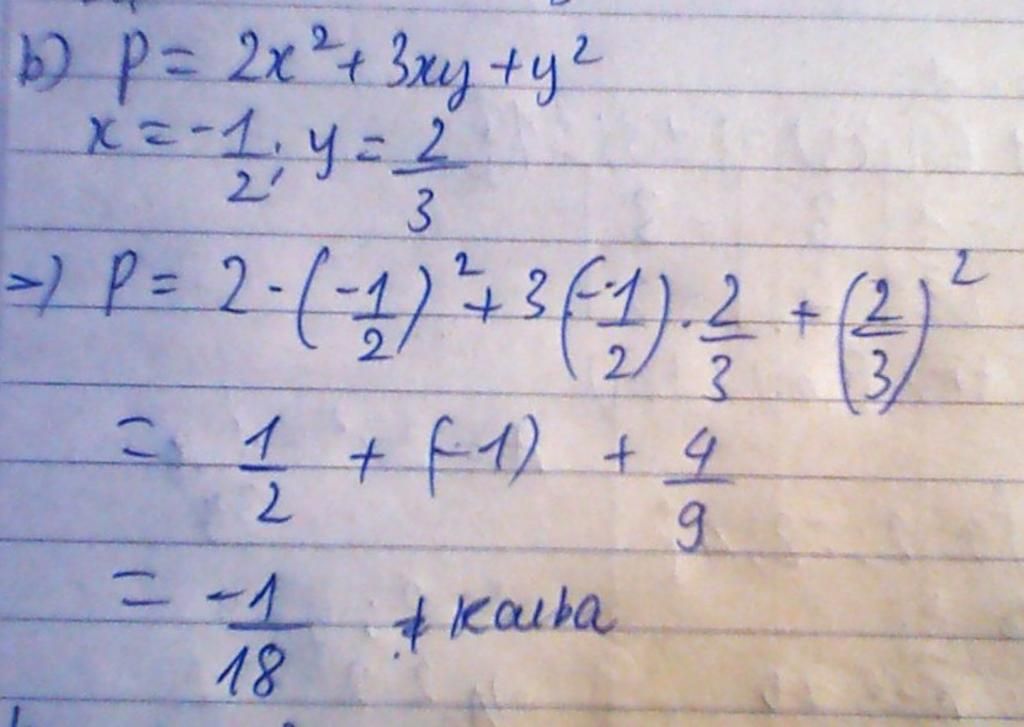 b) P = 2x² + 3xy + y²
x = -1/2; y = 2/3
=) P = 2 · (-1/2)² + 3(-1/2) · 2/3 + (2/3)²
= 1/2 + (-1) + 4/9
= -1/18